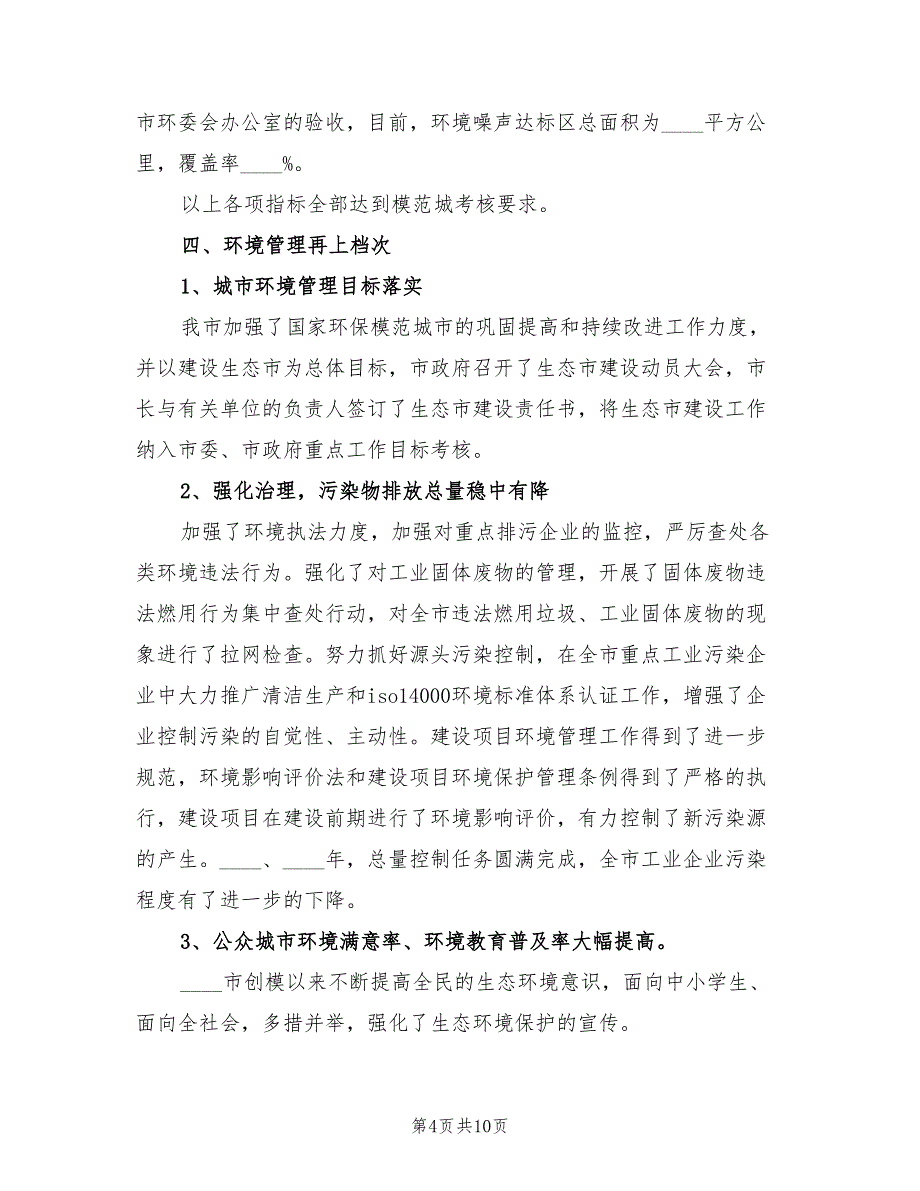 市环委会办公室的验收，目前，环境噪声达标区总面积为____平方公
里，覆盖率____%。
以上各项指标全部达到模范城考核要求。
四、环境管理再上档次
1、城市环境管理目标落实
我市加强了国家环保模范城市的巩固提高和持续改进工作力度，
并以建设生态市为总体目标，市政府召开了生态市建设动员大会，市
长与有关单位的负责人签订了生态市建设责任书，将生态市建设工作
纳入市委、市政府重点工作目标考核。
2、强化治理，污染物排放总量稳中有降
加强了环境执法力度，加强对重点排污企业的监控，严厉查处各
类环境违法行为。强化了对工业固体废物的管理，开展了固体废物违
法燃用行为集中查处行动，对全市违法燃用垃圾、工业固体废物的现
象进行了拉网检查。努力抓好源头污染控制，在全市重点工业污染企
业中大力推广清洁生产和iso14000环境标准体系认证工作，增强了企
业控制污染的自觉性、主动性。建设项目环境管理工作得到了进一步
规范，环境影响评价法和建设项目环境保护管理条例得到了严格的执
行，建设项目在建设前期进行了环境影响评价，有力控制了新污染源
的产生。____、____年，总量控制任务圆满完成，全市工业企业污染
程度有了进一步的下降。
3、公众城市环境满意率、环境教育普及率大幅提高。
____市创模以来不断提高全民的生态环境意识，面向中小学生、
面向全社会，多措并举，强化了生态环境保护的宣传。
第4页共10页